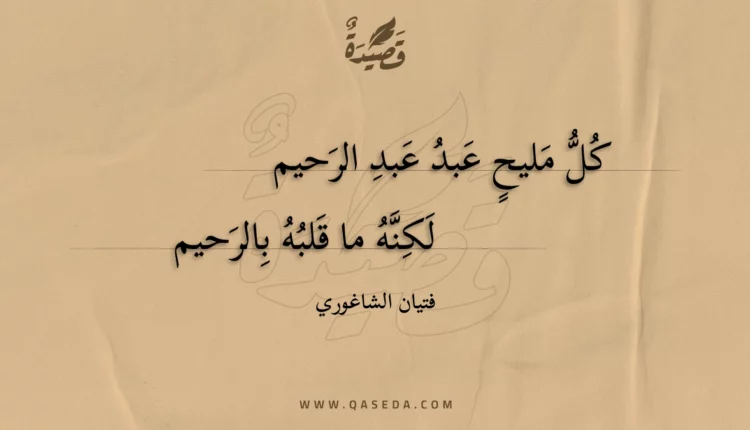 قَصِيْدَةٌ
كُلُّ مَليحٍ عَبدُ عَبدِ الرَحيم
لَكِنَّهُ ما قَلبُهُ بِالرَحيم
فتيان الشاغوري
WWW.QASEDA.COM